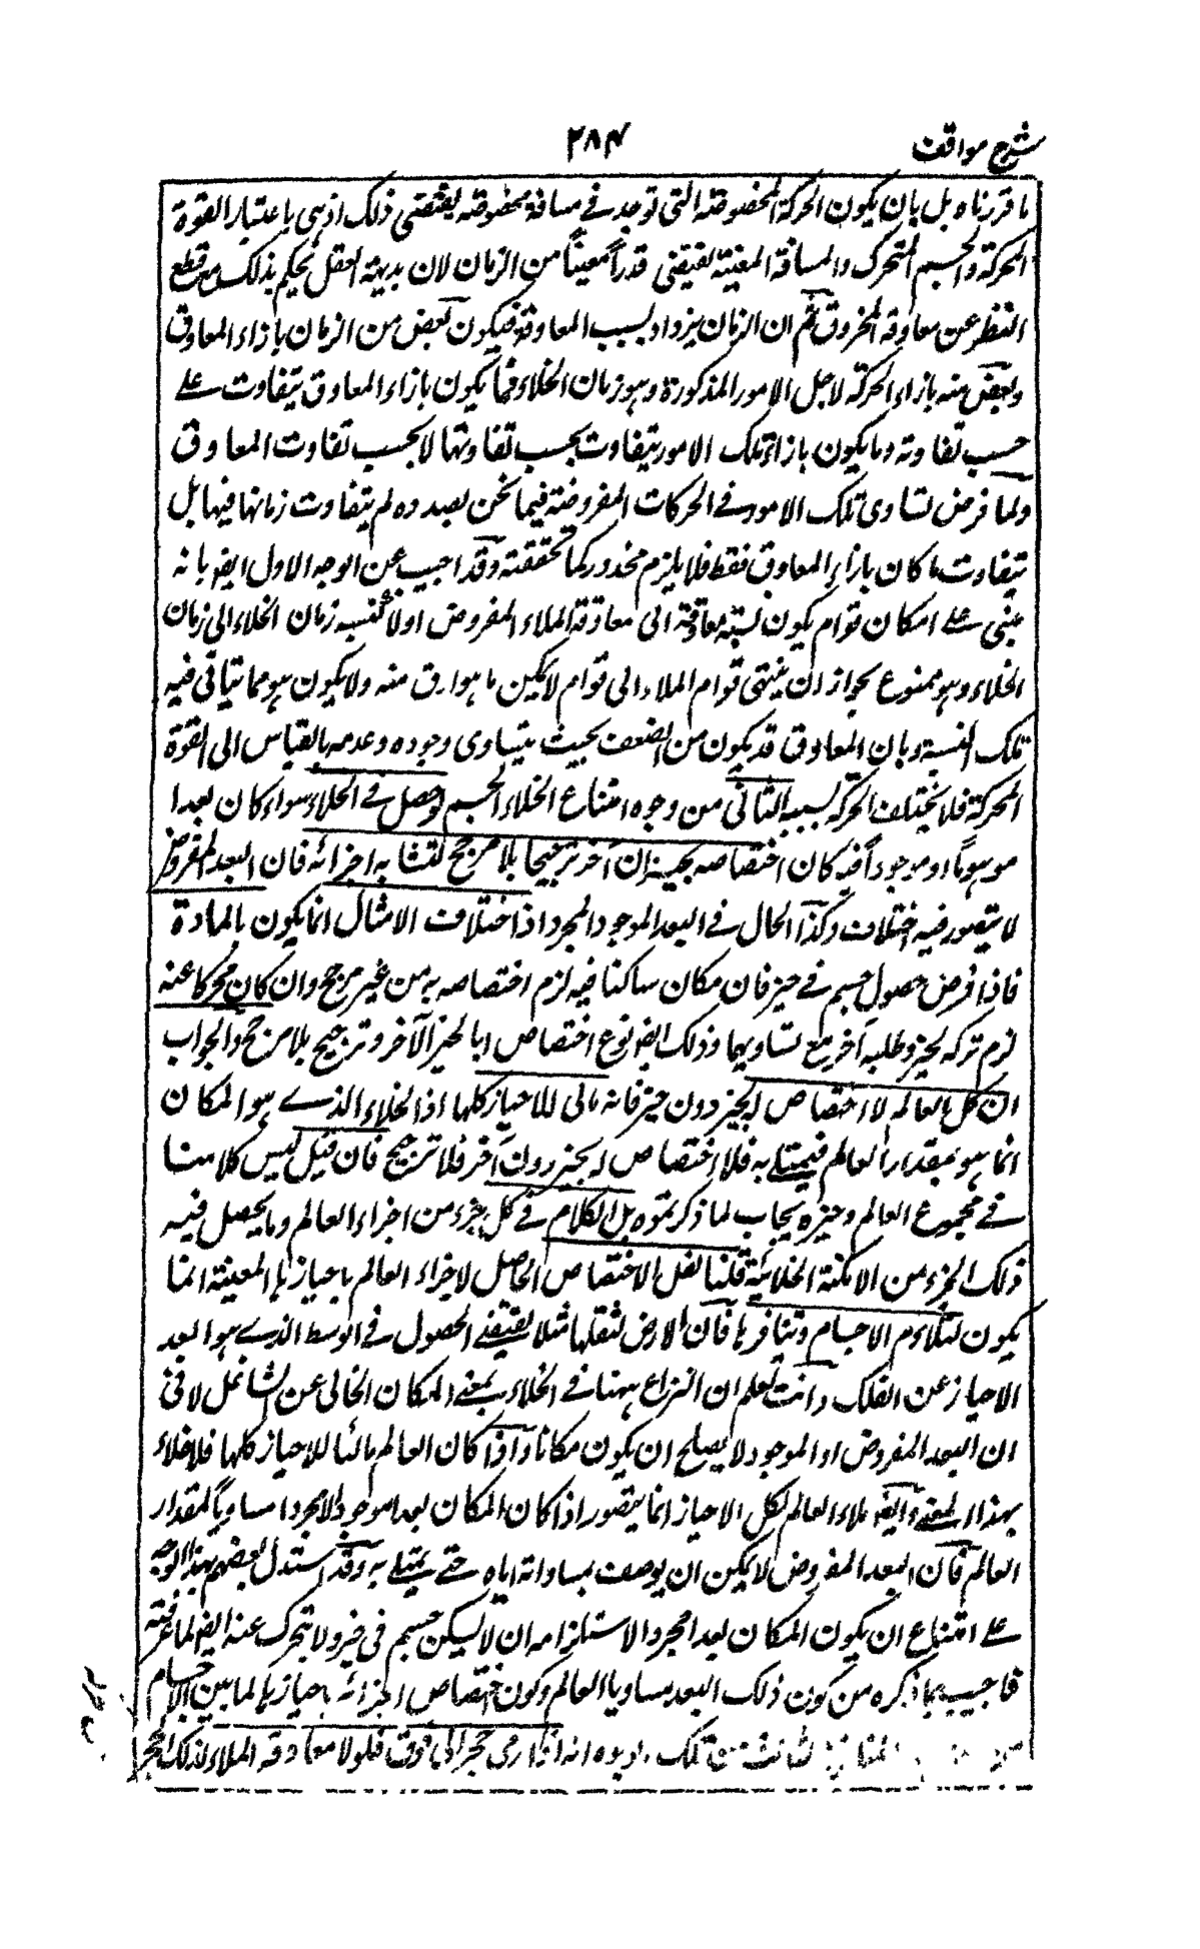 شرح مواقف
۲۸۴
ما قررناه بل بان يكون الحركة المخصوصة التى توجد فى مسافة مخصوصة يقتضى ذلك اذ هى باعتبار القوة
المحركة والجسم المتحرك والمسافة المعينة يقتضى قدراً معيناً من الزمان لان بديهة العقل يحكم بذلك مع قطع
النظر عن معاوقة المخروق ثم ان الزمان يزداد بسبب المعاوقة فيكون بعض من الزمان بازاء المعاوق
وبعض منه بازاء الحركة لاجل الامور المذكورة وهو زمان الخلاء فما يكون بازاء المعاوق يتفاوت على
حسب تفاوته وما يكون بازاء تلك الامور يتفاوت بحسب تفاوتها لا بحسب تفاوت المعاوق
ولما فرض تساوى تلك الامور فى الحركات المفروضة فيما نحن بصدده لم يتفاوت زمانها فيها بل
يتفاوت ما كان بازاء المعاوق فقط فلا يلزم محذور كما تحققته وقد اجيب عن الوجه الاول ايضا بانه
مبنى على امكان قوام يكون نسبة معاوقته الى معاوقة الملاء المفروض اولا كنسبة زمان الخلاء الى زمان
الخلاء وهو ممنوع بجواز ان ينتهى قوام الملاء الى قوام لا يمكن ما هو ارق منه ولا يكون هو مما يتأتى فيه
تلك النسبة وبان المعاوق قد يكون من الضعف بحيث يتساوى وجوده وعدمه بالقياس الى القوة
المحركة فلا يختلف الحركة بسببه الثانى من وجوه امتناع الخلاء الجسم لو حصل فى الخلاء سواء كان بعدا
موهوماً او موجوداً فيه كان اختصاصه بحيز دون آخر ترجيحا بلا مرجح لتشابه اجزائه فان البعد المفروض
لا يتصور فيه اختلاف وكذا الحال فى البعد الموجود المجرد اذ اختلاف الامثال انما يكون بالمادة
فاذا فرض حصول جسم فى حيز فان مكان ساكنا فيه لزم اختصاصه به من غير مرجح وان كان محركا عنه
لزم تركه لحيز وطلبه آخر مع تساويهما وذلك ايضا نوع اختصاص له بالحيز الآخر وترجيح بلا مرجح والجواب
ان كل العالم لا اختصاص له بحيز دون حيز فانه مالئ للاحياز كلها اذ الخلاء الذى هو المكان
انما هو بمقدار العالم فيمتلئ به فلا اختصاص له بحيز دون آخر فلا ترجيح فان قيل ليس كلامنا
فى مجموع العالم وحيزه يجاب لما ذكرتموه بل الكلام فى كل جزء من اجزاء العالم وما يحصل فيه
ذلك الجزء من الامكنة الخلائية قلنا لعل الاختصاص الحاصل لاجزاء العالم باحيازها المعينة انما
يكون لتلاؤم الاجسام وتنافرها فان الارض لثقلها مثلا يقتضى الحصول فى الوسط الذى هو ابعد
الاحياز عن الفلك وانت تعلم ان النزاع ههنا فى الخلاء بمعنى المكان الخالى عن الشاغل لا فى
ان البعد المفروض او الموجود لا يصلح ان يكون مكانا واذا كان العالم مالئا للاحياز كلها فلا خلاء
بهذا المعنى وايضا ملاء العالم لكل الاحياز انما يتصور اذا كان المكان بعدا موجودا مجردا مساوياً لمقدار
العالم فان البعد المفروض لا يمكن ان يوصف بمساواته اياه حتى يمتلئ به وقد استدل بعضهم بهذا الوجه
على امتناع ان يكون المكان بعدا مجردا لاستلزامه ان لا يسكن جسم فى حيز ولا يتحرك عنه ايضا لما عرفته
فاجيب بما ذكره من كون ذلك البعد مساويا للعالم وكون اختصاص اجزائه باحيازها لما بين الاجسام
الثالث من تلك الوجوه انه اذا رمى حجر الى فوق فلولا معاوقة الملاء لذلك الحجر